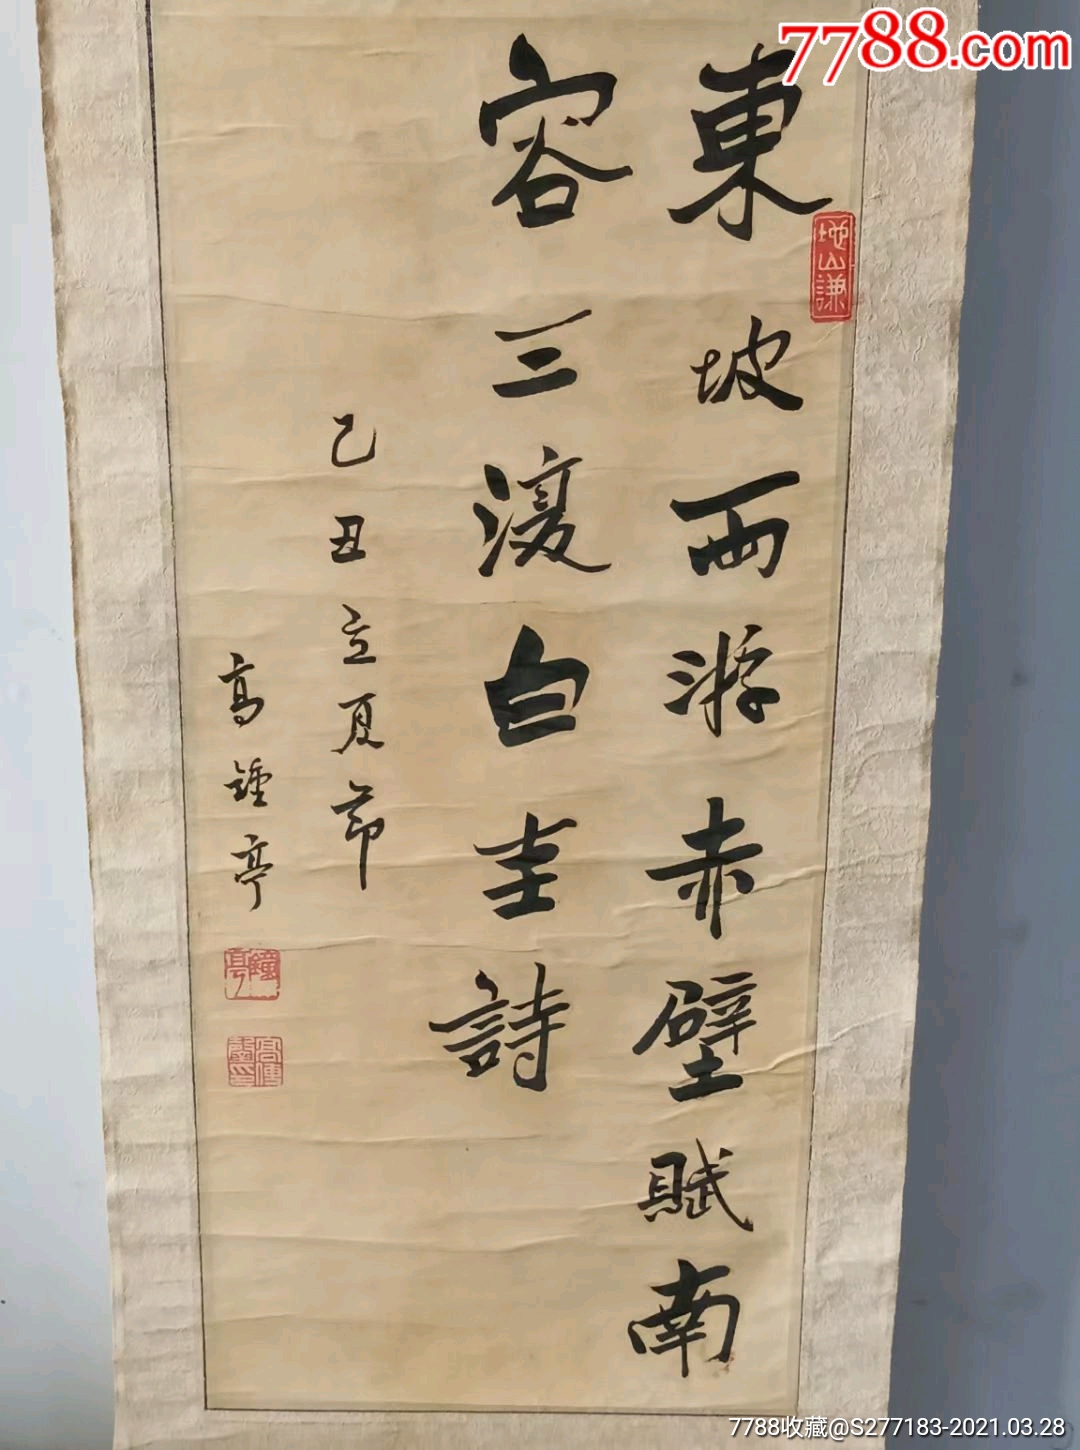 7788.com
東坡两游赤壁賦南
容三復白圭詩
己丑立夏節
高鍾亭
地山謙
7788收藏@S277183-2021.03.28